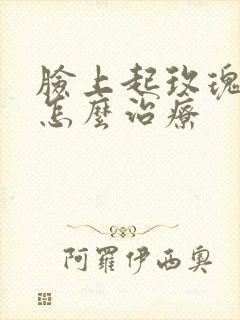 臉上起玫瑰
怎麼治療
阿羅伊西奧